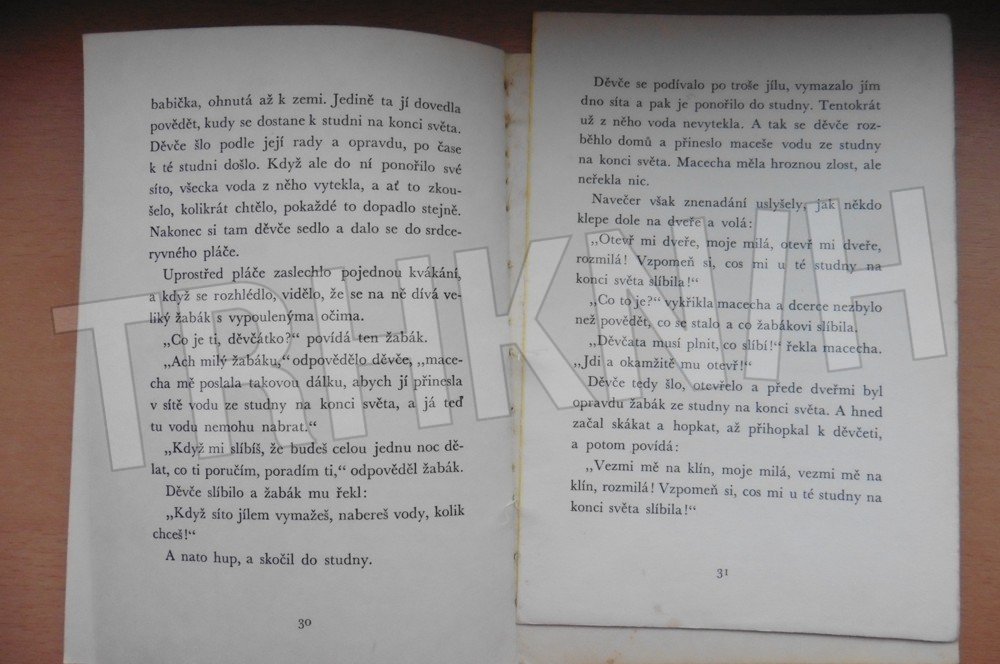 babička, ohnutá až k zemi. Jedině ta jí dovedla
povědět, kudy se dostane k studni na konci světa.
Děvče šlo podle její rady a opravdu, po čase
k té studni došlo. Když ale do ní ponořilo své
síto, všecka voda z něho vytekla, a ať to zkou-
šelo, kolikrát chtělo, pokaždé to dopadlo stejně.
Nakonec si tam děvče sedlo a dalo se do srdce-
ryvného pláče.
Uprostřed pláče zaslechlo pojednou kvákání,
a když se rozhlédlo, vidělo, že se na ně dívá ve-
liký žabák s vypoulenýma očima.
„Co je ti, děvčátko?“ povídá ten žabák.
„Ach milý žabáku,“ odpovědělo děvče, „mace-
cha mě poslala takovou dálku, abych jí přinesla
v sítě vodu ze studny na konci světa, a já teď
tu vodu nemohu nabrat.“
„Když mi slíbíš, že budeš celou jednu noc dě-
lat, co ti poručím, poradím ti,“ odpověděl žabák.
Děvče slíbilo a žabák mu řekl:
„Když síto jílem vymažeš, nabereš vody, kolik
chceš!“
A nato hup, a skočil do studny.
30
Děvče se podívalo po troše jílu, vymazalo jím
dno síta a pak je ponořilo do studny. Tentokrát
už z něho voda nevytekla. A tak se děvče roz-
běhlo domů a přineslo maceše vodu ze studny
na konci světa. Macecha měla hroznou zlost, ale
neřekla nic.
Navečer však znenadání uslyšely, jak někdo
klepe dole na dveře a volá:
„Otevř mi dveře, moje milá, otevř mi dveře,
rozmilá! Vzpomeň si, cos mi u té studny na
konci světa slíbila!“
„Co to je?“ vykřikla macecha a dcerce nezbylo
než povědět, co se stalo a co žabákovi slíbila.
„Děvčata musí plnit, co slíbí!“ řekla macecha.
„Jdi a okamžitě mu otevř!“
Děvče tedy šlo, otevřelo a přede dveřmi byl
opravdu žabák ze studny na konci světa. A hned
začal skákat a hopkat, až přihopkal k děvčeti,
a potom povídá:
„Vezmi mě na klín, moje milá, vezmi mě na
klín, rozmilá! Vzpomeň si, cos mi u té studny na
konci světa slíbila!“
31
TRHKNIH